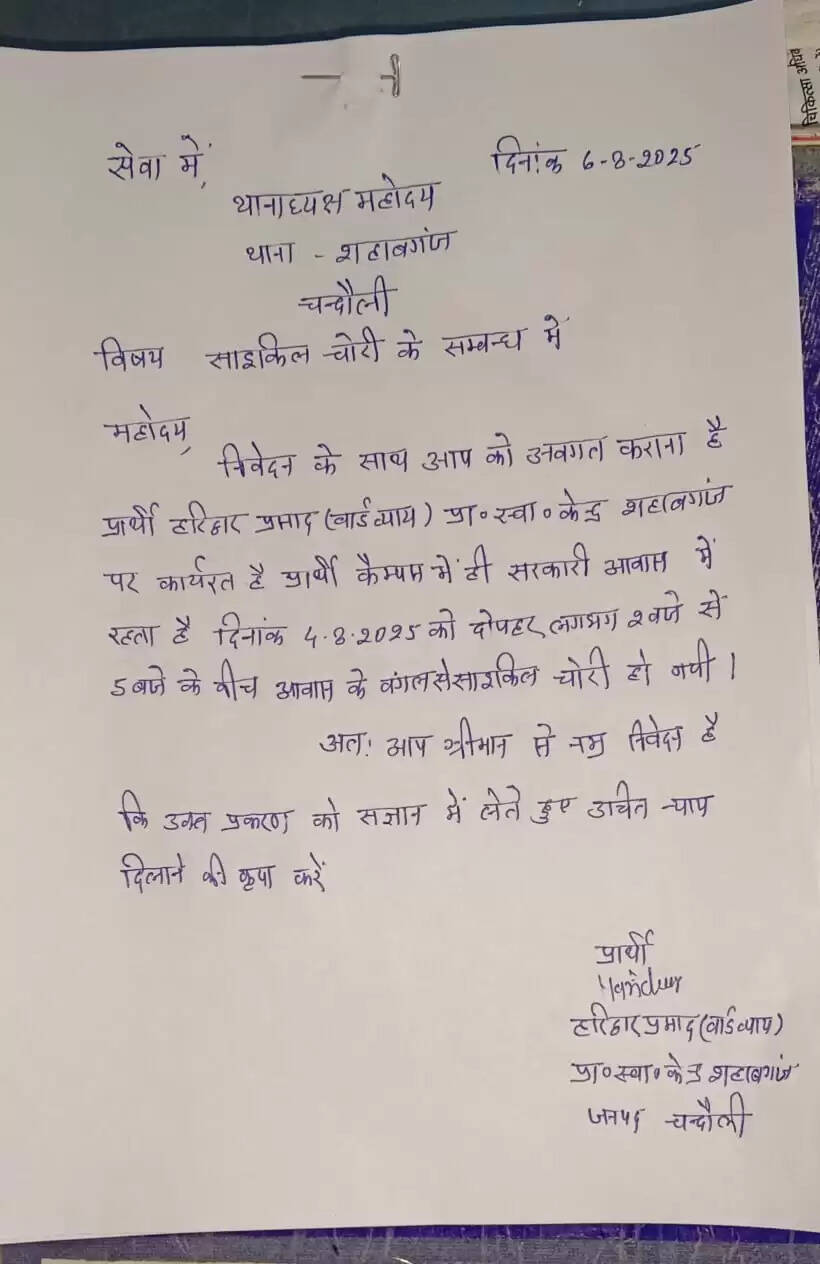 सेवा में, दिनांक 6-8-2025
थानाध्यक्ष महोदय
थाना - शहाबगंज
चन्दौली
विषय साइकिल चोरी के सम्बन्ध में
महोदय,
निवेदन के साथ आप को अवगत कराना है
प्रार्थी हरिद्वार प्रसाद (वार्ड व्वाय) प्रा॰स्वा॰केन्द्र शहाबगंज
पर कार्यरत है प्रार्थी कैम्पस में ही सरकारी आवास में
रहता है दिनांक 4-8-2025 को दोपहर लगभग 2 बजे से
5 बजे के बीच आवास के बंगल से साइकिल चोरी हो गयी।
अतः आप श्रीमान से नम्र निवेदन है
कि उक्त प्रकरण को सज्ञान में लेते हुए उचित न्याय
दिलाने की कृपा करें
प्रार्थी
हरिद्वार प्रसाद (वार्ड व्वाय)
प्रा॰स्वा॰केन्द्र शहाबगंज
जनपद चन्दौली
चिकित्सा अधि